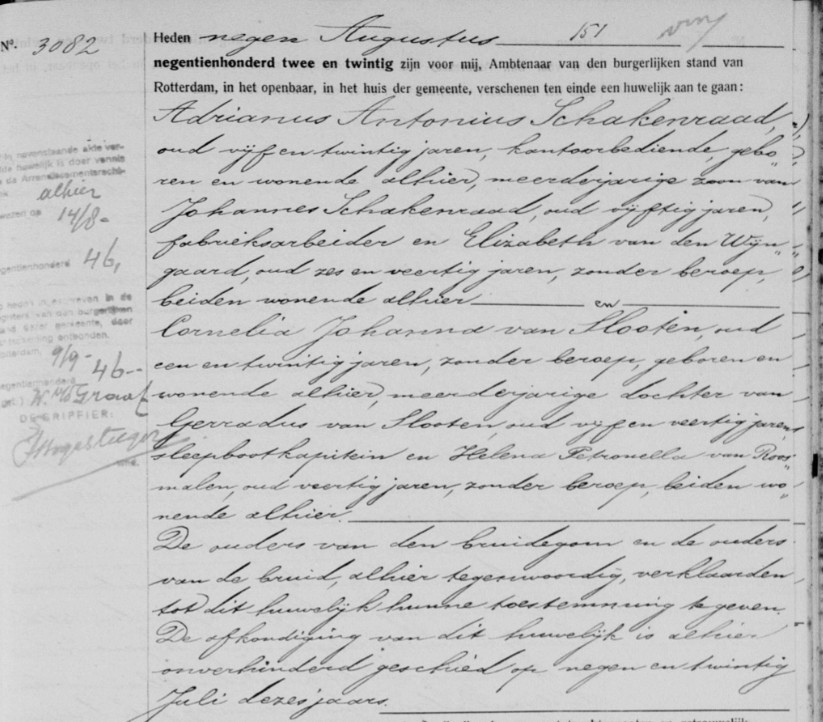 Nº. 3082
Heden negen Augustus 151
negentienhonderd twee en twintig zijn voor mij, Ambtenaar van den burgerlijken stand van
Rotterdam, in het openbaar, in het huis der gemeente, verschenen ten einde een huwelijk aan te gaan:
Adrianus Antonius Schakenraad,
oud vijf en twintig jaren, kantoorbediende, gebo"
ren en wonende alhier, meerderjarige zoon van
Johannes Schakenraad, oud vijftig jaren,
fabrieksarbeider en Elizabeth van den Wijn"
gaard, oud zes en veertig jaren, zonder beroep,
beiden wonende alhier en
Cornelia Johanna van Slooten, oud
een en twintig jaren, zonder beroep, geboren en
wonende alhier, meerderjarige dochter van
Gerradus van Slooten, oud vijf en veertig jaren,
sleepbootkapitein en Helena Petronella van Roos"
malen, oud veertig jaren, zonder beroep, beiden wo"
nende alhier.
De ouders van den bruidegom en de ouders
van de bruid, alhier tegenwoordig, verklaarden
tot dit huwelijk hunne toestemming te geven.
De afkondiging van dit huwelijk is alhier
onverhinderd geschied op negen en twintig
Juli dezes jaars.
alhier
14/8-
46,
9/9- 46-
W. de Graaf
DE GRIFFIER: